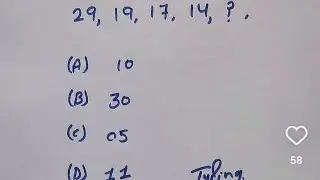 29, 19, 17, 14, ?.
(A) 10
(B) 30
(C) 05
(D) 11
Typing
58